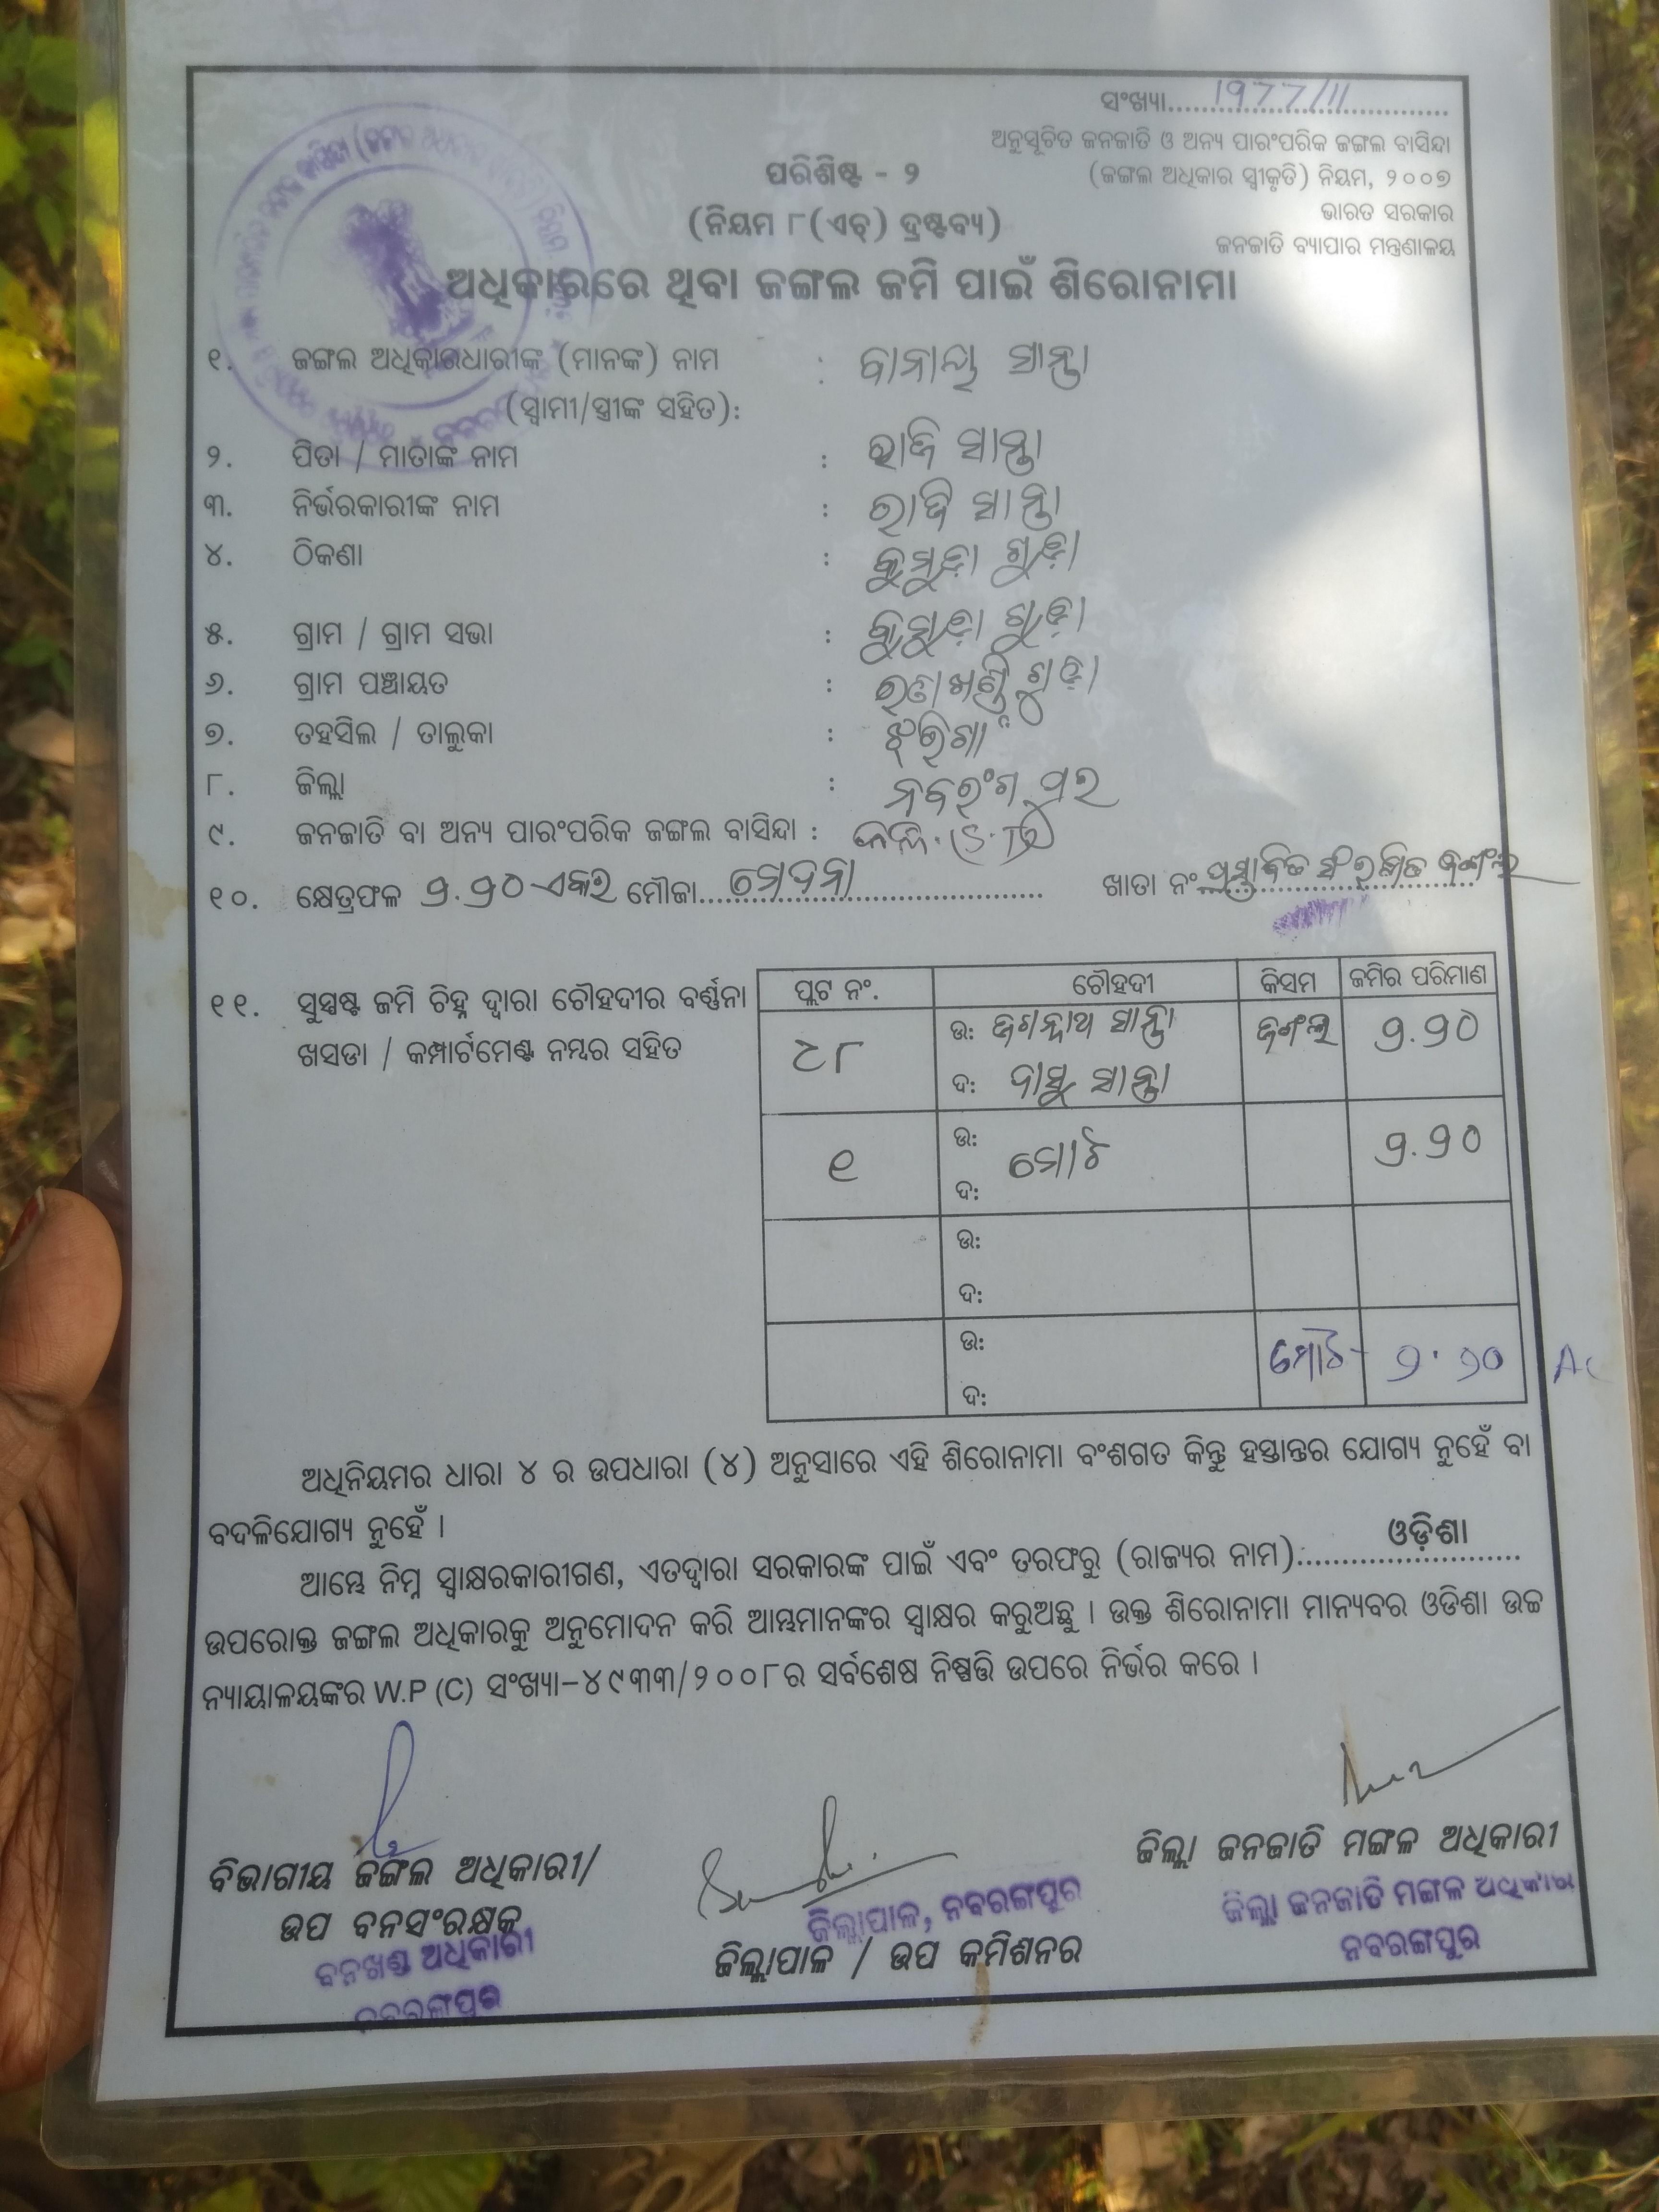 ସଂଖ୍ୟା.....1977/11.....
ଅନୁସୂଚିତ ଜନଜାତି ଓ ଅନ୍ୟ ପାରଂପରିକ ଜଙ୍ଗଲ ବାସିନ୍ଦା
(ଜଙ୍ଗଲ ଅଧିକାର ସ୍ୱୀକୃତି) ନିୟମ, ୨୦୦୭
ଭାରତ ସରକାର
ଜନଜାତି ବ୍ୟାପାର ମନ୍ତ୍ରଣାଳୟ
ପରିଶିଷ୍ଟ - ୨
(ନିୟମ ୮(ଏଚ୍) ଦ୍ରଷ୍ଟବ୍ୟ)
ଅଧିକାରରେ ଥିବା ଜଙ୍ଗଲ ଜମି ପାଇଁ ଶିରୋନାମା
୧. ଜଙ୍ଗଲ ଅଧିକାରଧାରୀଙ୍କ (ମାନଙ୍କ) ନାମ : ସାନ୍ତା
(ସ୍ୱାମୀ/ସ୍ତ୍ରୀଙ୍କ ସହିତ):
୨. ପିତା / ମାତାଙ୍କ ନାମ : ରାଜି ସାନ୍ତା
୩. ନିର୍ଭରକାରୀଙ୍କ ନାମ : ରାଜି ସାନ୍ତା
୪. ଠିକଣା : କୁମୁଡ଼ା ଗୁଡ଼ା
୫. ଗ୍ରାମ / ଗ୍ରାମ ସଭା : କୁମୁଡ଼ା ଗୁଡ଼ା
୬. ଗ୍ରାମ ପଞ୍ଚାୟତ : ଗୁଡ଼ା
୭. ତହସିଲ / ତାଲୁକା : ଝରିଗାଁ
୮. ଜିଲ୍ଲା : ନବରଂଗପୁର
୯. ଜନଜାତି ବା ଅନ୍ୟ ପାରଂପରିକ ଜଙ୍ଗଲ ବାସିନ୍ଦା :
୧୦. କ୍ଷେତ୍ରଫଳ ୨.୨୦ ଏକର ମୌଜା..... ଖାତା ନଂ ପ୍ରସ୍ତାବିତ ସଂରକ୍ଷିତ ଜଙ୍ଗଲ
୧୧. ସୁସ୍ପଷ୍ଟ ଜମି ଚିହ୍ନ ଦ୍ୱାରା ଚୌହଦୀର ବର୍ଣ୍ଣନା
ଖସଡା / କମ୍ପାର୍ଟମେଣ୍ଟ ନମ୍ବର ସହିତ
ପ୍ଲଟ ନଂ. ଚୌହଦୀ କିସମ ଜମିର ପରିମାଣ
ଉ: ଜଗନ୍ନାଥ ସାନ୍ତା ଜଙ୍ଗଲ ୨.୨୦
ଦ: ଦାସୁ ସାନ୍ତା
୧ ଉ: ମୋଟ ୨.୨୦
ଦ:
ଉ:
ଦ:
ଉ: ମୋଟ ୨.୨୦ Ac
ଦ:
ଅଧିନିୟମର ଧାରା ୪ ର ଉପଧାରା (୪) ଅନୁସାରେ ଏହି ଶିରୋନାମା ବଂଶଗତ କିନ୍ତୁ ହସ୍ତାନ୍ତର ଯୋଗ୍ୟ ନୁହେଁ ବା
ବଦଳିଯୋଗ୍ୟ ନୁହେଁ ।
ଆମ୍ଭେ ନିମ୍ନ ସ୍ୱାକ୍ଷରକାରୀଗଣ, ଏତଦ୍ୱାରା ସରକାରଙ୍କ ପାଇଁ ଏବଂ ତରଫରୁ (ରାଜ୍ୟର ନାମ).....ଓଡ଼ିଶା.....
ଉପରୋକ୍ତ ଜଙ୍ଗଲ ଅଧିକାରକୁ ଅନୁମୋଦନ କରି ଆମ୍ଭମାନଙ୍କର ସ୍ୱାକ୍ଷର କରୁଅଛୁ । ଉକ୍ତ ଶିରୋନାମା ମାନ୍ୟବର ଓଡିଶା ଉଚ୍ଚ
ନ୍ୟାୟାଳୟଙ୍କର W.P (C) ସଂଖ୍ୟା-୪୯୩୩/୨୦୦୮ର ସର୍ବଶେଷ ନିଷ୍ପତ୍ତି ଉପରେ ନିର୍ଭର କରେ ।
ବିଭାଗୀୟ ଜଙ୍ଗଲ ଅଧିକାରୀ/
ଉପ ବନସଂରକ୍ଷକ
ବନଖଣ୍ଡ ଅଧିକାରୀ
ନବରଙ୍ଗପୁର
ଜିଲ୍ଲାପାଳ, ନବରଙ୍ଗପୁର
ଜିଲ୍ଲାପାଳ / ଉପ କମିଶନର
ଜିଲ୍ଲା ଜନଜାତି ମଙ୍ଗଳ ଅଧିକାରୀ
ଜିଲ୍ଲା ଜନଜାତି ମଙ୍ଗଳ ଅଧିକାରୀ
ନବରଙ୍ଗପୁର